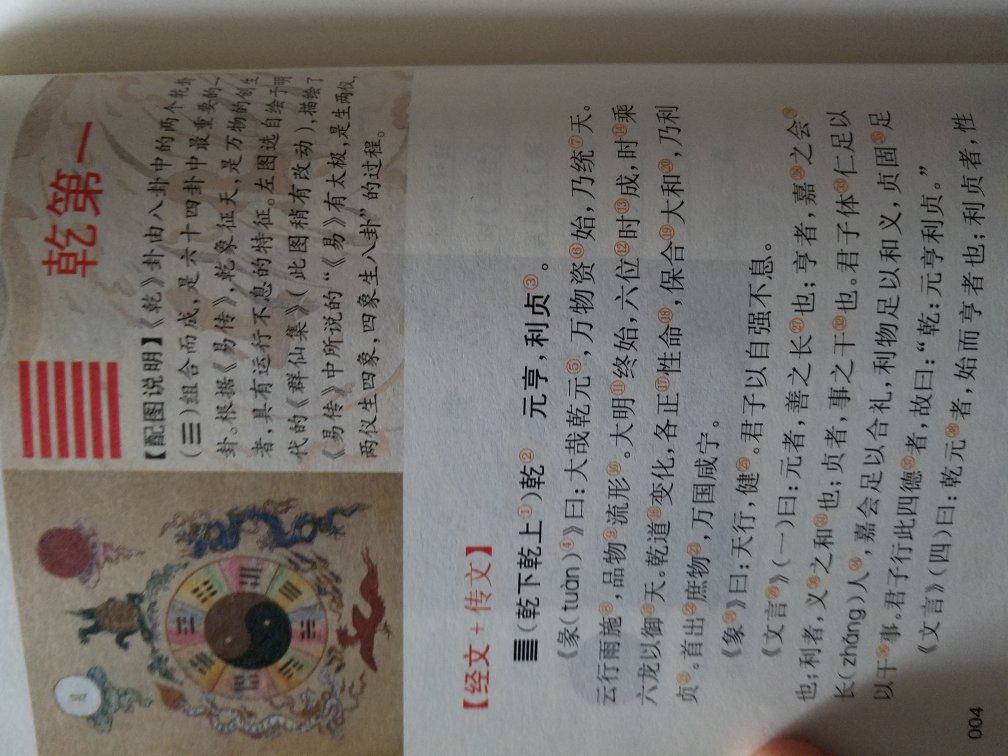 乾第一
【配图说明】《乾》卦由八卦中的两个乾卦
(☰)组合而成,是六十四卦中最重要的一
卦。根据《易传》,乾象征天,是万物的创生
者,具有运行不息的特征。左图选自绘于明
代的《群仙集》(此图稍有改动),描绘了
《易传》中所说的“《易》有太极,是生两仪,
两仪生四象,四象生八卦”的过程。
【经文+传文】
䷀(乾下乾上①)乾② 元亨,利贞③。
《彖(tuàn)④》曰:大哉乾元⑤,万物资⑥始,乃统⑦天。
云行雨施⑧,品物⑨流形⑩。大明⑪终始,六位⑫时⑬成,时⑭乘
六龙以御⑮天。乾道⑯变化,各正⑰性命⑱,保合⑲大和⑳,乃利
贞㉑。首出㉒庶物㉓,万国咸宁。
《象㉔》曰:天行,健㉕。君子以自强不息。
《文言㉖》(一)曰:元者,善之长㉗也;亨者,嘉㉘之会㉙
也;利者,义㉚之和㉛也;贞者,事之干㉜也。君子体㉝仁足以
长(zhǎng)人㉞,嘉会足以合礼,利物足以和义,贞固㉟足
以干㊱事。君子行此四德㊲者,故曰:“乾:元亨利贞。”
《文言》(四)曰:乾元㊳者,始而亨者也;利贞者,性
004